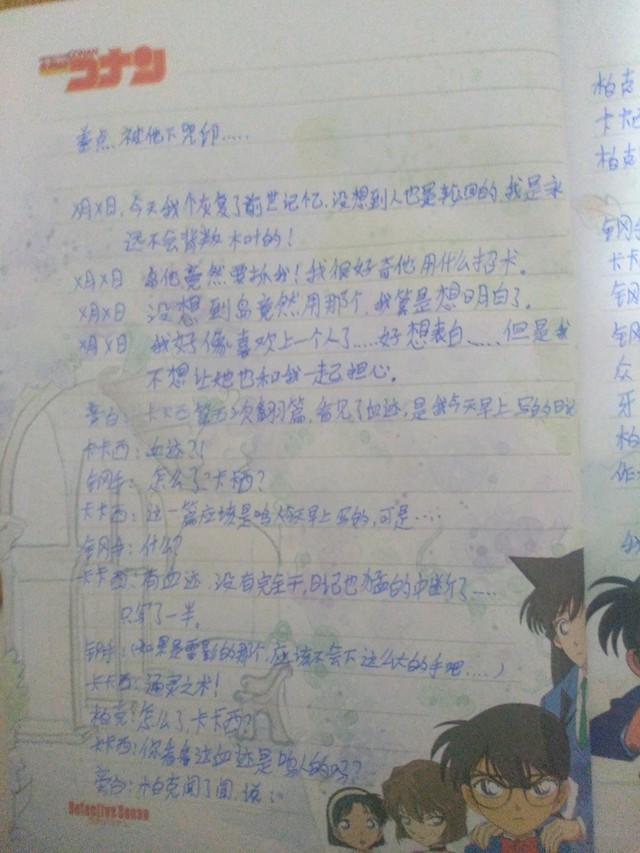 コナン
差点被他下咒印.....
X月X日,今天我个恢复了前世记忆.没想到人也是轮回的.我是永
远不会背叛木叶的!
X月X日 岛他竟然要抓我!我很好奇他用什么招术。
X月X日 没想到岛竟然用那个,我算是想明白了。
X月X日 我好像喜欢上一个人了.....好想表白......但是我
不想让她也和我一起担心。
旁白:卡卡西第 次翻 篇,看见了血迹,是 今天早上写的日记
卡卡西:血迹?!
钢手:怎么了?卡卡西?
卡卡西:这一篇应该是鸣人今天早上写的,可是....
钢手:什么?
卡卡西:有血迹.没有完全干,日记也 的中断了.....
只写了一半。
钢手:(如果是雷影的那个,应该不会下这么大的手吧....)
卡卡西:通灵之术!
柏克:怎么了,卡卡西?
卡卡西:你看看这血迹是鸣人的吗?
旁白:柏克闻了闻.说:
Detective Conan
柏克
卡卡西
柏克
钢手
卡卡
钢
钢
众
牙
柏
作
我